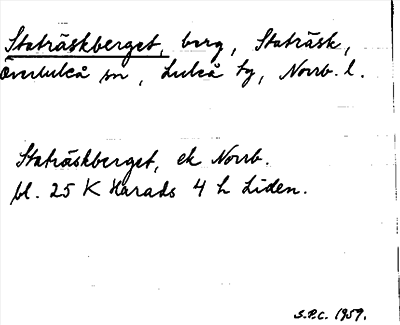 Staträskberget, berg, Staträsk,
Överluleå sn, Luleå tg, Norrb. l.
Staträskberget, ek Norrb.
bl. 25 K Harads 4 h Liden.
S.P.C. 1959.